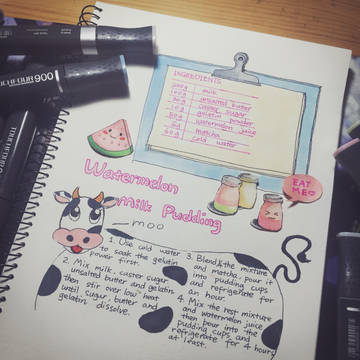 900
INGREDIENTS
milk
unsalted butter
caster sugar
gelatin powder
watermelon juice
matcha
cold water
EAT
ME
Watermelon
Milk Pudding
moo
1. Use cold water
to soak the gelatin
power first.
2. Mix milk, caster sugar
unsalted butter and gelatin
then stir over low heat
until sugar, butter and
gelatin dissolve.
3. Blend the mixture
and matcha, pour it
into pudding cups
and refrigerate for
an hour.
4. Mix the rest mixture
and watermelon juice
then pour into the
pudding cups and
refrigerate for 4 hours
at least.